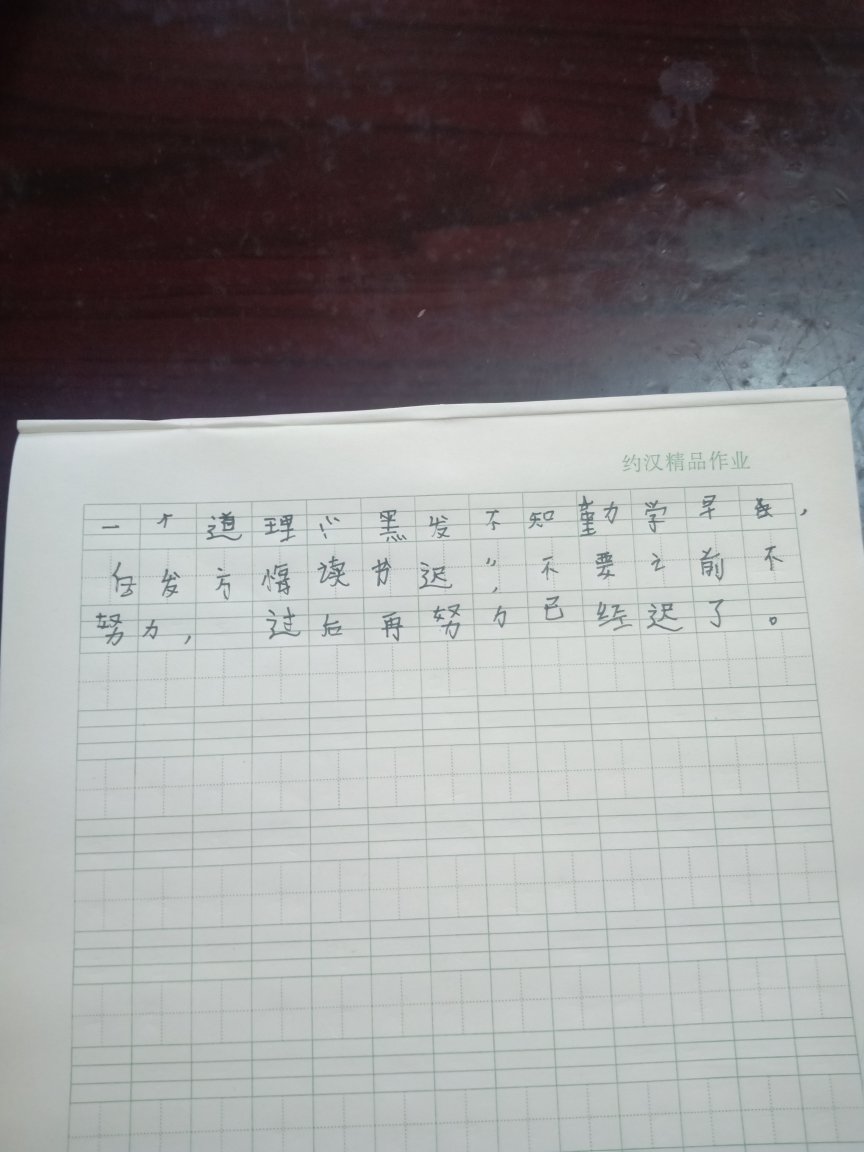 约汉精品作业
一个道理:“黑发不知勤学早,
白发方悔读书迟”,不要之前不
努力,过后再努力已经迟了。